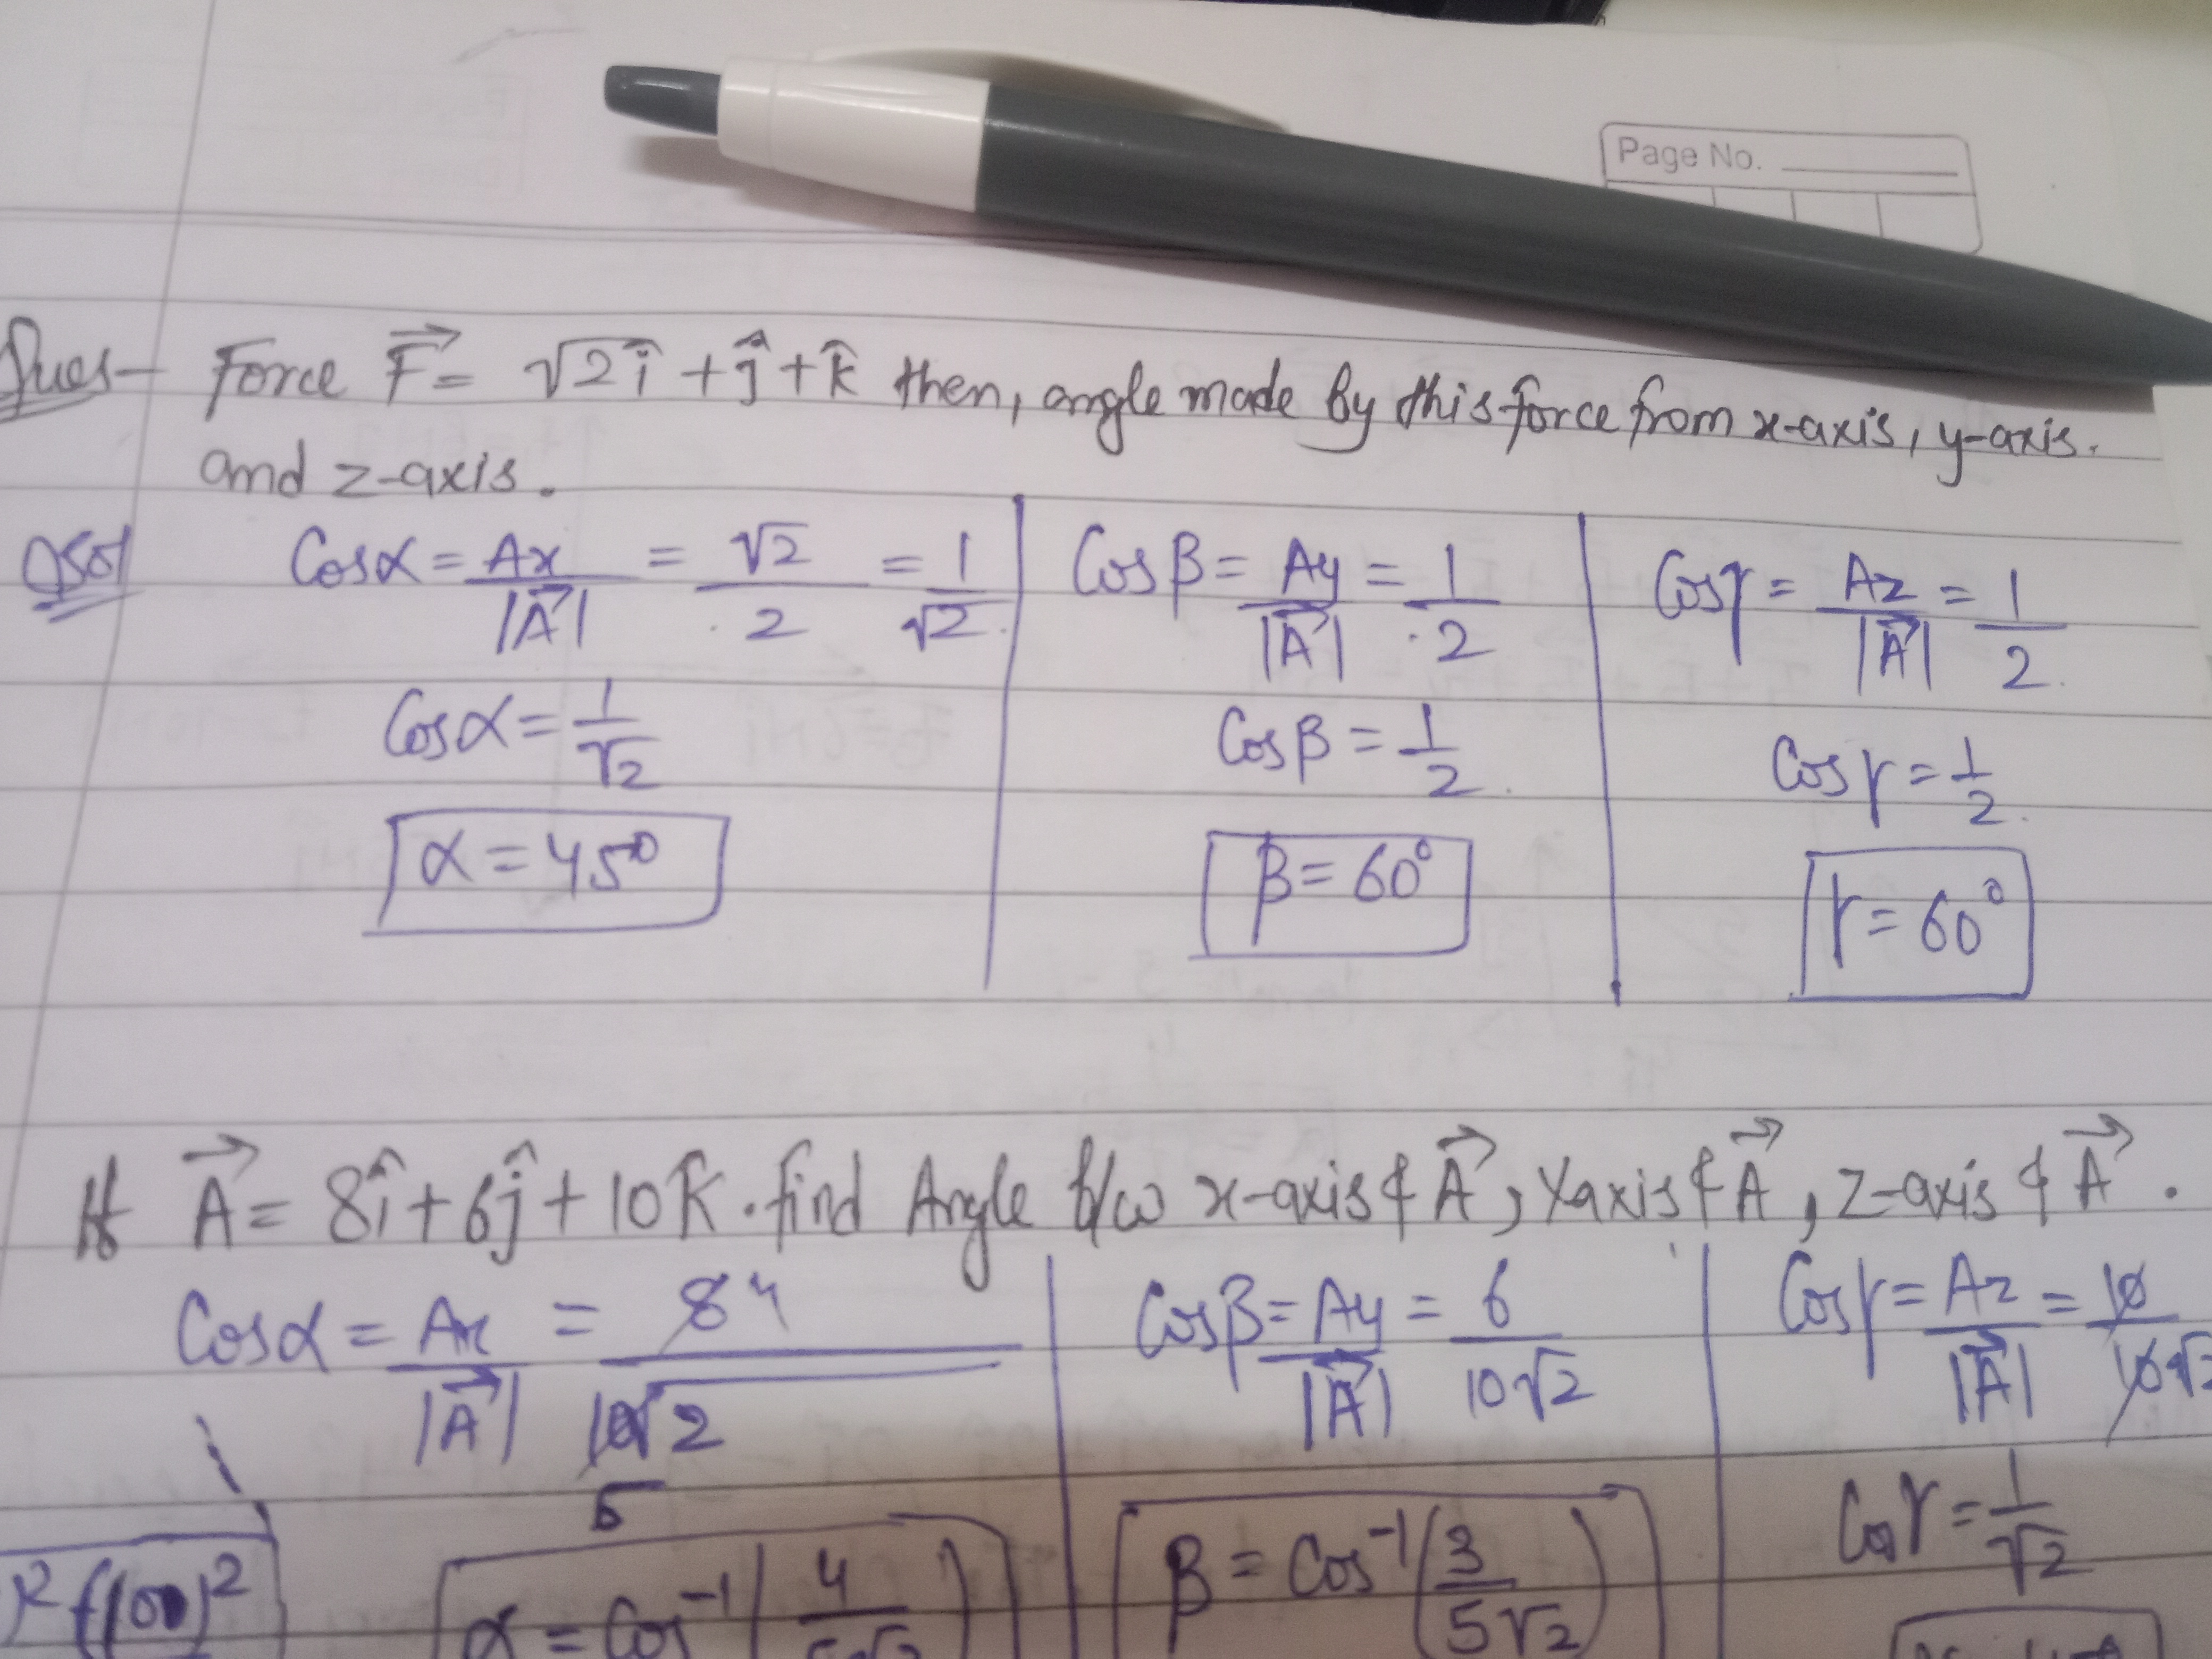 Page No.
Ques- Force F⃗ = √2î + ĵ + k̂ then, angle made by this force from x-axis, y-axis.
and z-axis.
Cosα = Ax/|A⃗| = √2/2 = 1/√2
Cosα = 1/√2
α = 45°
Cosβ = Ay/|A⃗| = 1/2
Cosβ = 1/2
β = 60°
Cosγ = Az/|A⃗| = 1/2
Cosγ = 1/2
γ = 60°
If A⃗ = 8î + 6ĵ + 10k̂. find Angle b/w x-axis & A⃗, Yaxis & A⃗, Z-axis & A⃗.
Cosα = Ax/|A⃗| = 8 4/10√2 5
α = Cos⁻¹(4
Cosβ = Ay/|A⃗| = 6/10√2
β = Cos⁻¹(3/5√2)
Cosγ = Az/|A⃗| = 10/10√2
Cosγ = 1/√2